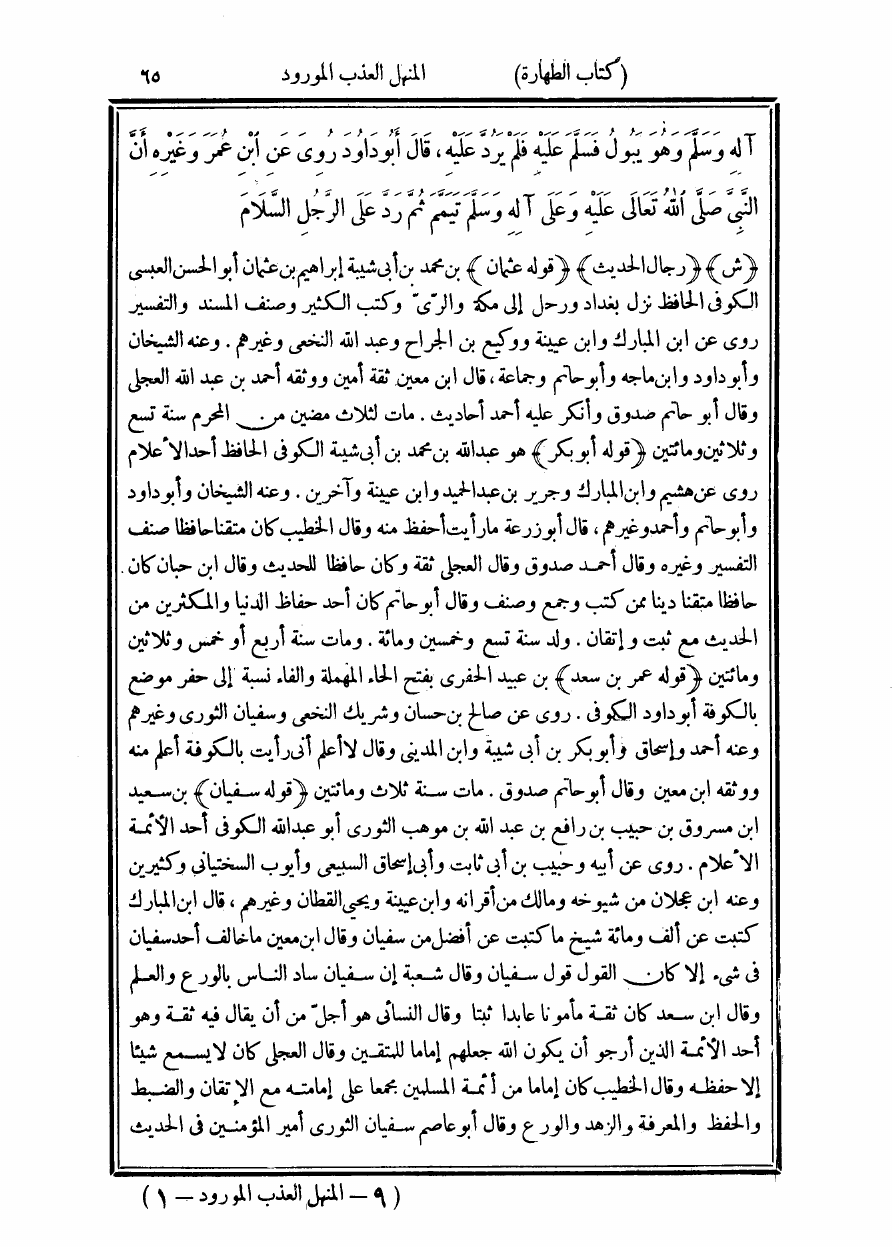 (كتاب الطهارة) المنهل العذب المورود ٦٥
آلِهِ وَسَلَّمَ وَهُوَ يَبُولُ فَسَلَّمَ عَلَيْهِ فَلَمْ يَرُدَّ عَلَيْهِ، قَالَ أَبُودَاوُدَ رُوِىَ عَنِ ابْنِ عُمَرَ وَغَيْرِهِ أَنَّ
النَّبِىَّ صَلَّى اللهُ تَعَالَى عَلَيْهِ وَعَلَى آلِهِ وَسَلَّمَ تَيَمَّمَ ثُمَّ رَدَّ عَلَى الرَّجُلِ السَّلَامَ
﴿ش﴾ ﴿رجال الحديث﴾ ﴿قوله عثمان﴾ بن محمد بن أبى شيبة إبراهيم بن عثمان أبو الحسن العبسى
الكوفى الحافظ نزل بغداد ورحل إلى مكة والرّىّ وكتب الكثير وصنف المسند والتفسير
روى عن ابن المبارك وابن عيينة ووكيع بن الجراح وعبد الله النخعى وغيرهم. وعنه الشيخان
وأبو داود وابن ماجه وأبو حاتم وجماعة، قال ابن معين ثقة أمين ووثقه أحمد بن عبد الله العجلى
وقال أبو حاتم صدوق وأنكر عليه أحمد أحاديث. مات لثلاث مضين من المحرم سنة تسع
وثلاثين ومائتين ﴿قوله أبو بكر﴾ هو عبدالله بن محمد بن أبى شيبة الكوفى الحافظ أحد الأعلام
روى عن هشيم وابن المبارك وجرير بن عبدالحميد وابن عيينة وآخرين. وعنه الشيخان وأبو داود
وأبو حاتم وأحمد وغيرهم، قال أبو زرعة ما رأيت أحفظ منه وقال الخطيب كان متقنا حافظا صنف
التفسير وغيره وقال أحمد صدوق وقال العجلى ثقة وكان حافظا للحديث وقال ابن حبان كان
حافظا متقنا دينا ممن كتب وجمع وصنف وقال أبو حاتم كان أحد حفاظ الدنيا والمكثرين من
الحديث مع ثبت وإتقان. ولد سنة تسع وخمسين ومائة. ومات سنة أربع أو خمس وثلاثين
ومائتين ﴿قوله عمر بن سعد﴾ بن عبيد الحفرى بفتح الحاء المهملة والفاء نسبة إلى حفر موضع
بالكوفة أبو داود الكوفى. روى عن صالح بن حسان وشريك النخعى وسفيان الثورى وغيرهم
وعنه أحمد وإسحاق وأبو بكر بن أبى شيبة وابن المدينى وقال لا أعلم أنى رأيت بالكوفة أعلم منه
ووثقه ابن معين وقال أبو حاتم صدوق. مات سنة ثلاث ومائتين ﴿قوله سفيان﴾ بن سعيد
ابن مسروق بن حبيب بن رافع بن عبد الله بن موهب الثورى أبو عبدالله الكوفى أحد الأئمة
الأعلام. روى عن أبيه وحبيب بن أبى ثابت وأبى إسحاق السبيعى وأيوب السختيانى وكثيرين
وعنه ابن عجلان من شيوخه ومالك من أقرانه وابن عيينة ويحيى القطان وغيرهم، قال ابن المبارك
كتبت عن ألف ومائة شيخ ما كتبت عن أفضل من سفيان وقال ابن معين ما خالف أحد سفيان
فى شىء إلا كان القول قول سفيان وقال شعبة إن سفيان ساد الناس بالورع والعلم
وقال ابن سعد كان ثقة مأمونا عابدا ثبتا وقال النسائى هو أجلّ من أن يقال فيه ثقة وهو
أحد الأئمة الذين أرجو أن يكون الله جعلهم إماما للمتقين وقال العجلى كان لا يسمع شيئا
إلا حفظه وقال الخطيب كان إماما من أئمة المسلمين مجمعا على إمامته مع الإتقان والضبط
والحفظ والمعرفة والزهد والورع وقال أبو عاصم سفيان الثورى أمير المؤمنين فى الحديث
(٩ – المنهل العذب المورود – ١)